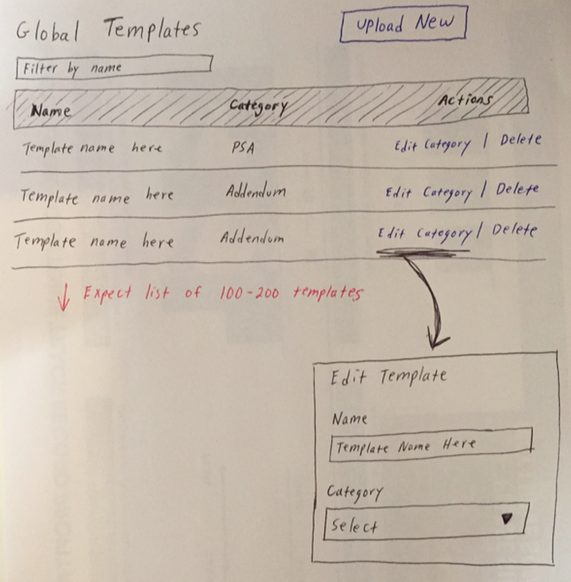 Global Templates
Upload New
Filter by name
Name Category Actions
Template name here PSA Edit Category | Delete
Template name here Addendum Edit Category | Delete
Template name here Addendum Edit Category | Delete
↓ Expect list of 100-200 templates
Edit Template
Name
Template Name Here
Category
Select